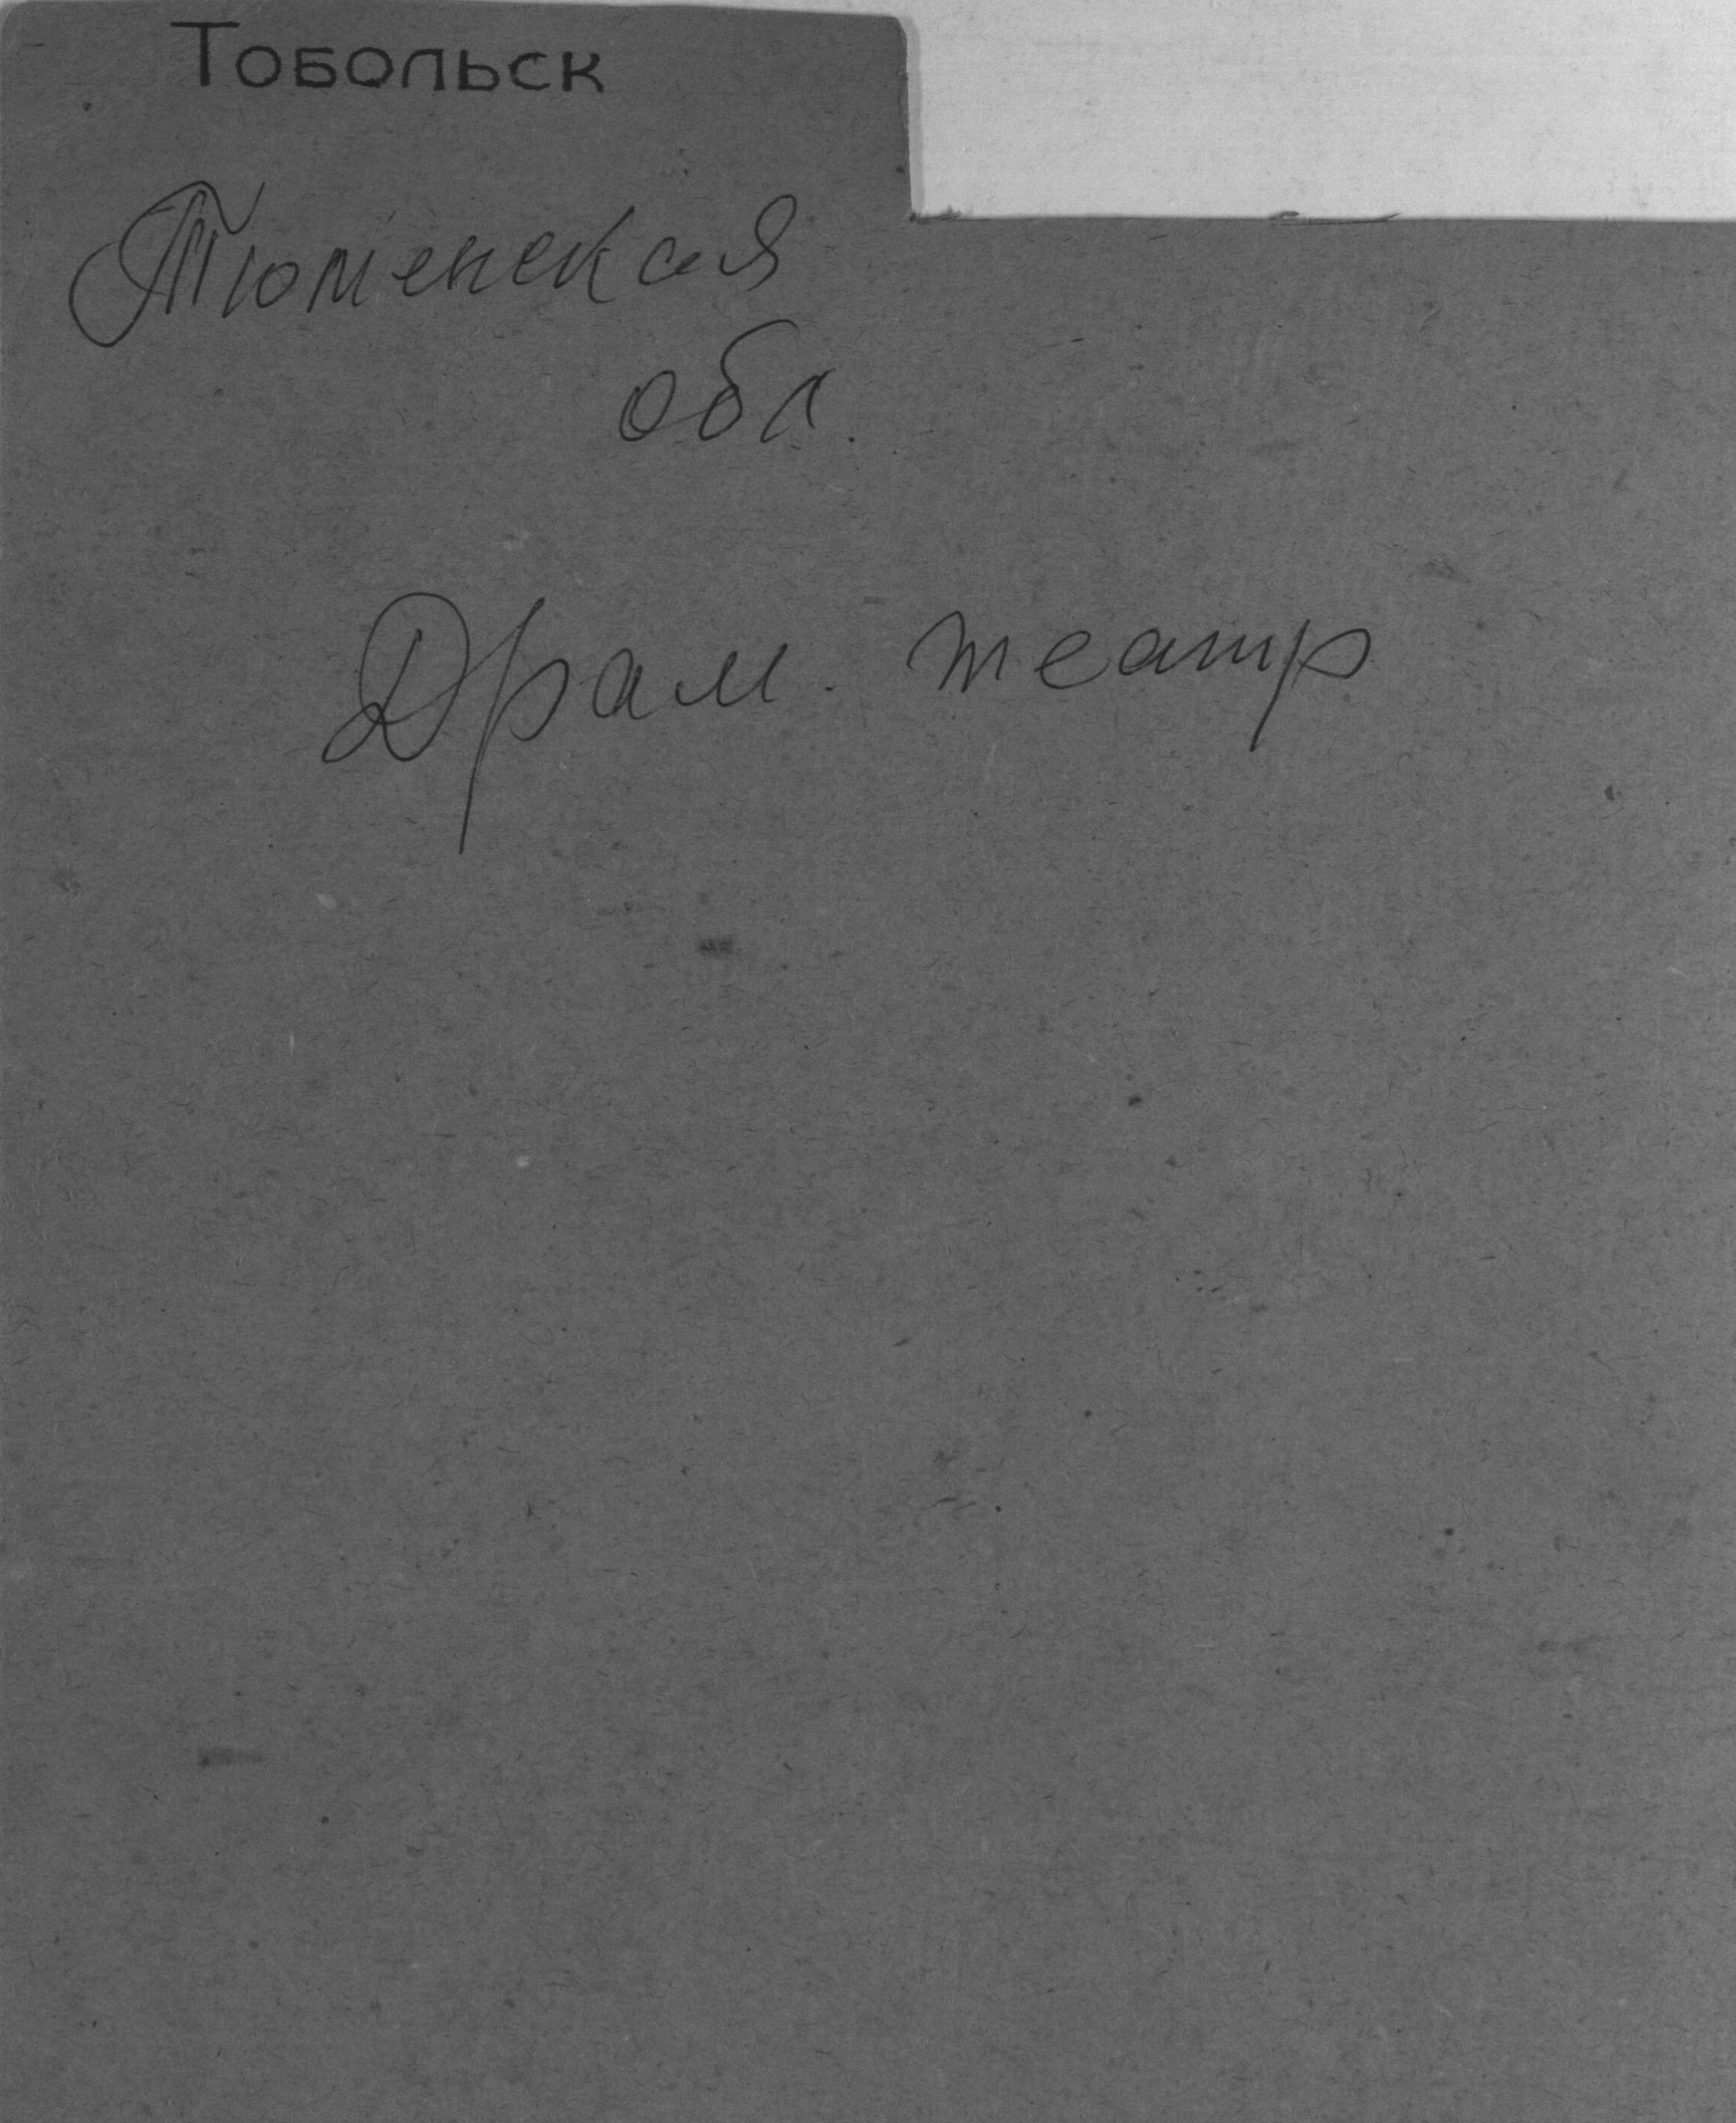 Тобольск
Тюменская
обл.
Драм. театр